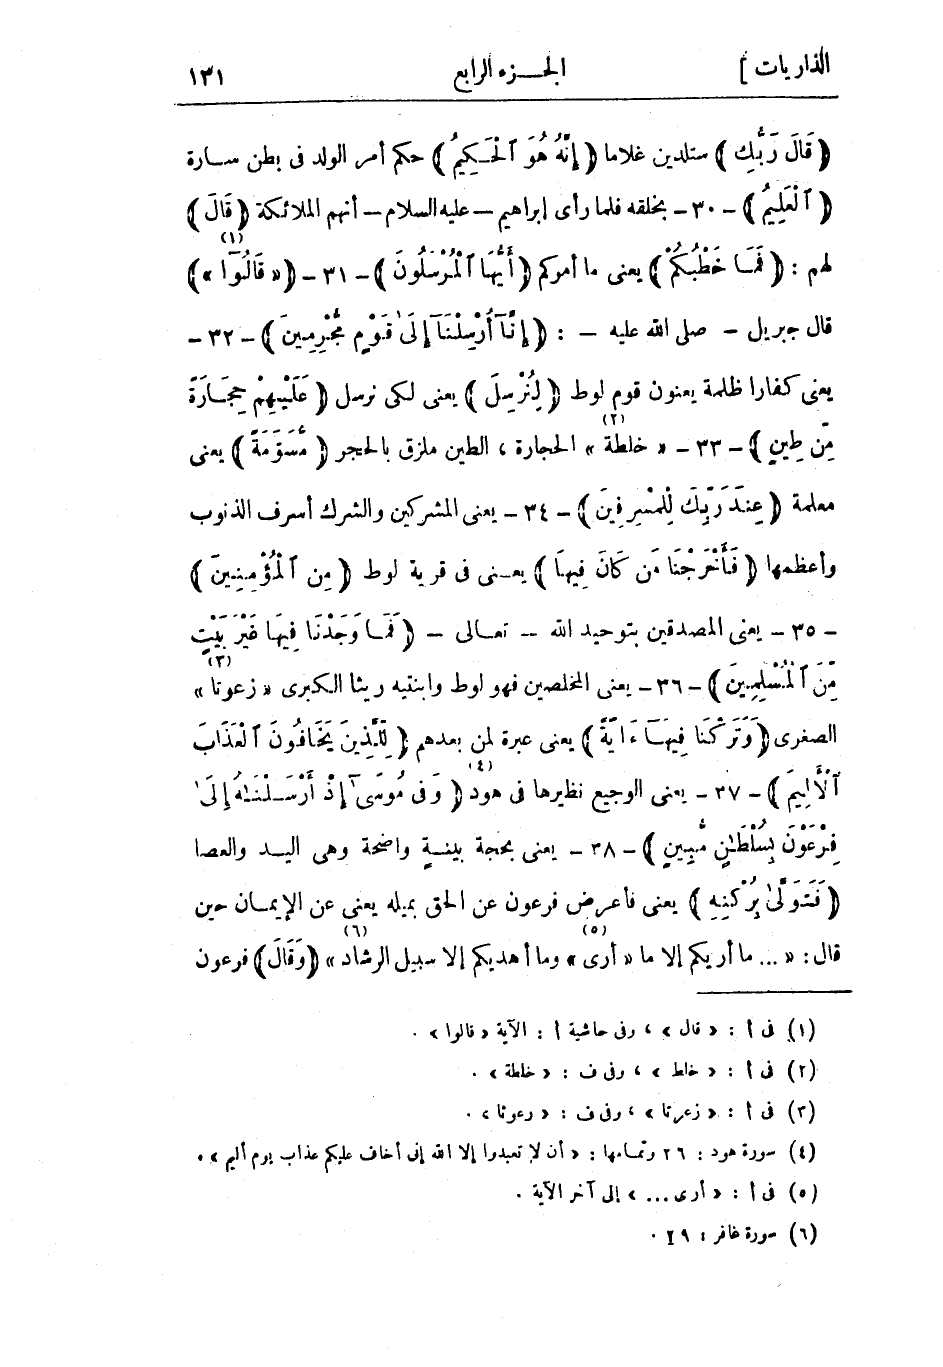 الذاريات ] الجـــزء الرابع ١٣١
﴿ قَالَ رَبُّكِ ﴾ ستلدين غلاما ﴿ إِنَّهُ هُوَ ٱلْحَكِيمُ ﴾ حكم أمر الولد فى بطن سارة
﴿ ٱلْعَلِيمُ ﴾ - ٣٠ - بخلقه فلما رأى إبراهيم - عليه السلام - أنهم الملائكة ﴿ قَالَ ﴾
لهم : ﴿ فَمَا خَطْبُكُمْ ﴾ يعنى ما أموركم ﴿ أَيُّهَا ٱلْمُرْسَلُونَ ﴾ - ٣١ - ﴿ « قَالُوٓا » (١) ﴾
قال جبريل - صلى الله عليه - : ﴿ إِنَّآ أُرْسِلْنَآ إِلَىٰ قَوْمٍ مُّجْرِمِينَ ﴾ - ٣٢ -
يعنى كفارا ظلمة يعنون قوم لوط ﴿ لِنُرْسِلَ ﴾ يعنى لكى نرسل ﴿ عَلَيْهِمْ حِجَارَةً
مِّن طِينٍ ﴾ - ٣٣ - « خلطة (٢) » الحجارة ، الطين ملزق بالحجر ﴿ مُّسَوَّمَةً ﴾ يعنى
معلمة ﴿ عِندَ رَبِّكَ لِلْمُسْرِفِينَ ﴾ - ٣٤ - يعنى المشركين والشرك أسرف الذنوب
وأعظمها ﴿ فَأَخْرَجْنَا مَن كَانَ فِيهَا ﴾ يعـنى فى قرية لوط ﴿ مِنَ ٱلْمُؤْمِنِينَ ﴾
- ٣٥ - يعنى المصدقين بتوحيد الله - تعالى - ﴿ فَمَا وَجَدْنَا فِيهَا غَيْرَ بَيْتٍ
مِّنَ ٱلْمُسْلِمِينَ ﴾ - ٣٦ - يعنى المخلصين فهو لوط وابنتيه ريثا الكبرى « زعوتا (٣) »
الصغرى ﴿ وَتَرَكْنَا فِيهَآ ءَايَةً ﴾ يعنى عبرة لمن بعدهم ﴿ لِّلَّذِينَ يَخَافُونَ ٱلْعَذَابَ
ٱلْأَلِيمَ ﴾ - ٣٧ - يعنى الوجيع نظيرها فى هود (٤) ﴿ وَفِى مُوسَىٰٓ إِذْ أَرْسَلْنَـٰهُ إِلَىٰ
فِرْعَوْنَ بِسُلْطَـٰنٍ مُّبِينٍ ﴾ - ٣٨ - يعنى بحجة بينـة واضحة وهى اليـد والعصا
﴿ فَتَوَلَّىٰ بِرُكْنِهِ ﴾ يعنى فأعرض فرعون عن الحق بميله يعنى عن الإيمـان حين
قال : « ... ما أريكم إلا ما « أرى (٥) » وما أهديكم إلا سبيل الرشاد (٦) » ﴿ وَقَالَ ﴾ فرعون
(١) فى أ : « قال » ، وفى حاشية أ : الآية « قالوا » .
(٢) فى أ : « خلط » ، وفى ف : « خلطة » .
(٣) فى أ : « زعرتا » ، وفى ف : « رعوثا » .
(٤) سورة هود : ٢٦ وتمـامها : « أن لا تعبدوا إلا الله إنى أخاف عليكم عذاب يوم أليم » .
(٥) فى أ : « أرى ... » إلى آخر الآية .
(٦) سورة غافر : ٢٩ .